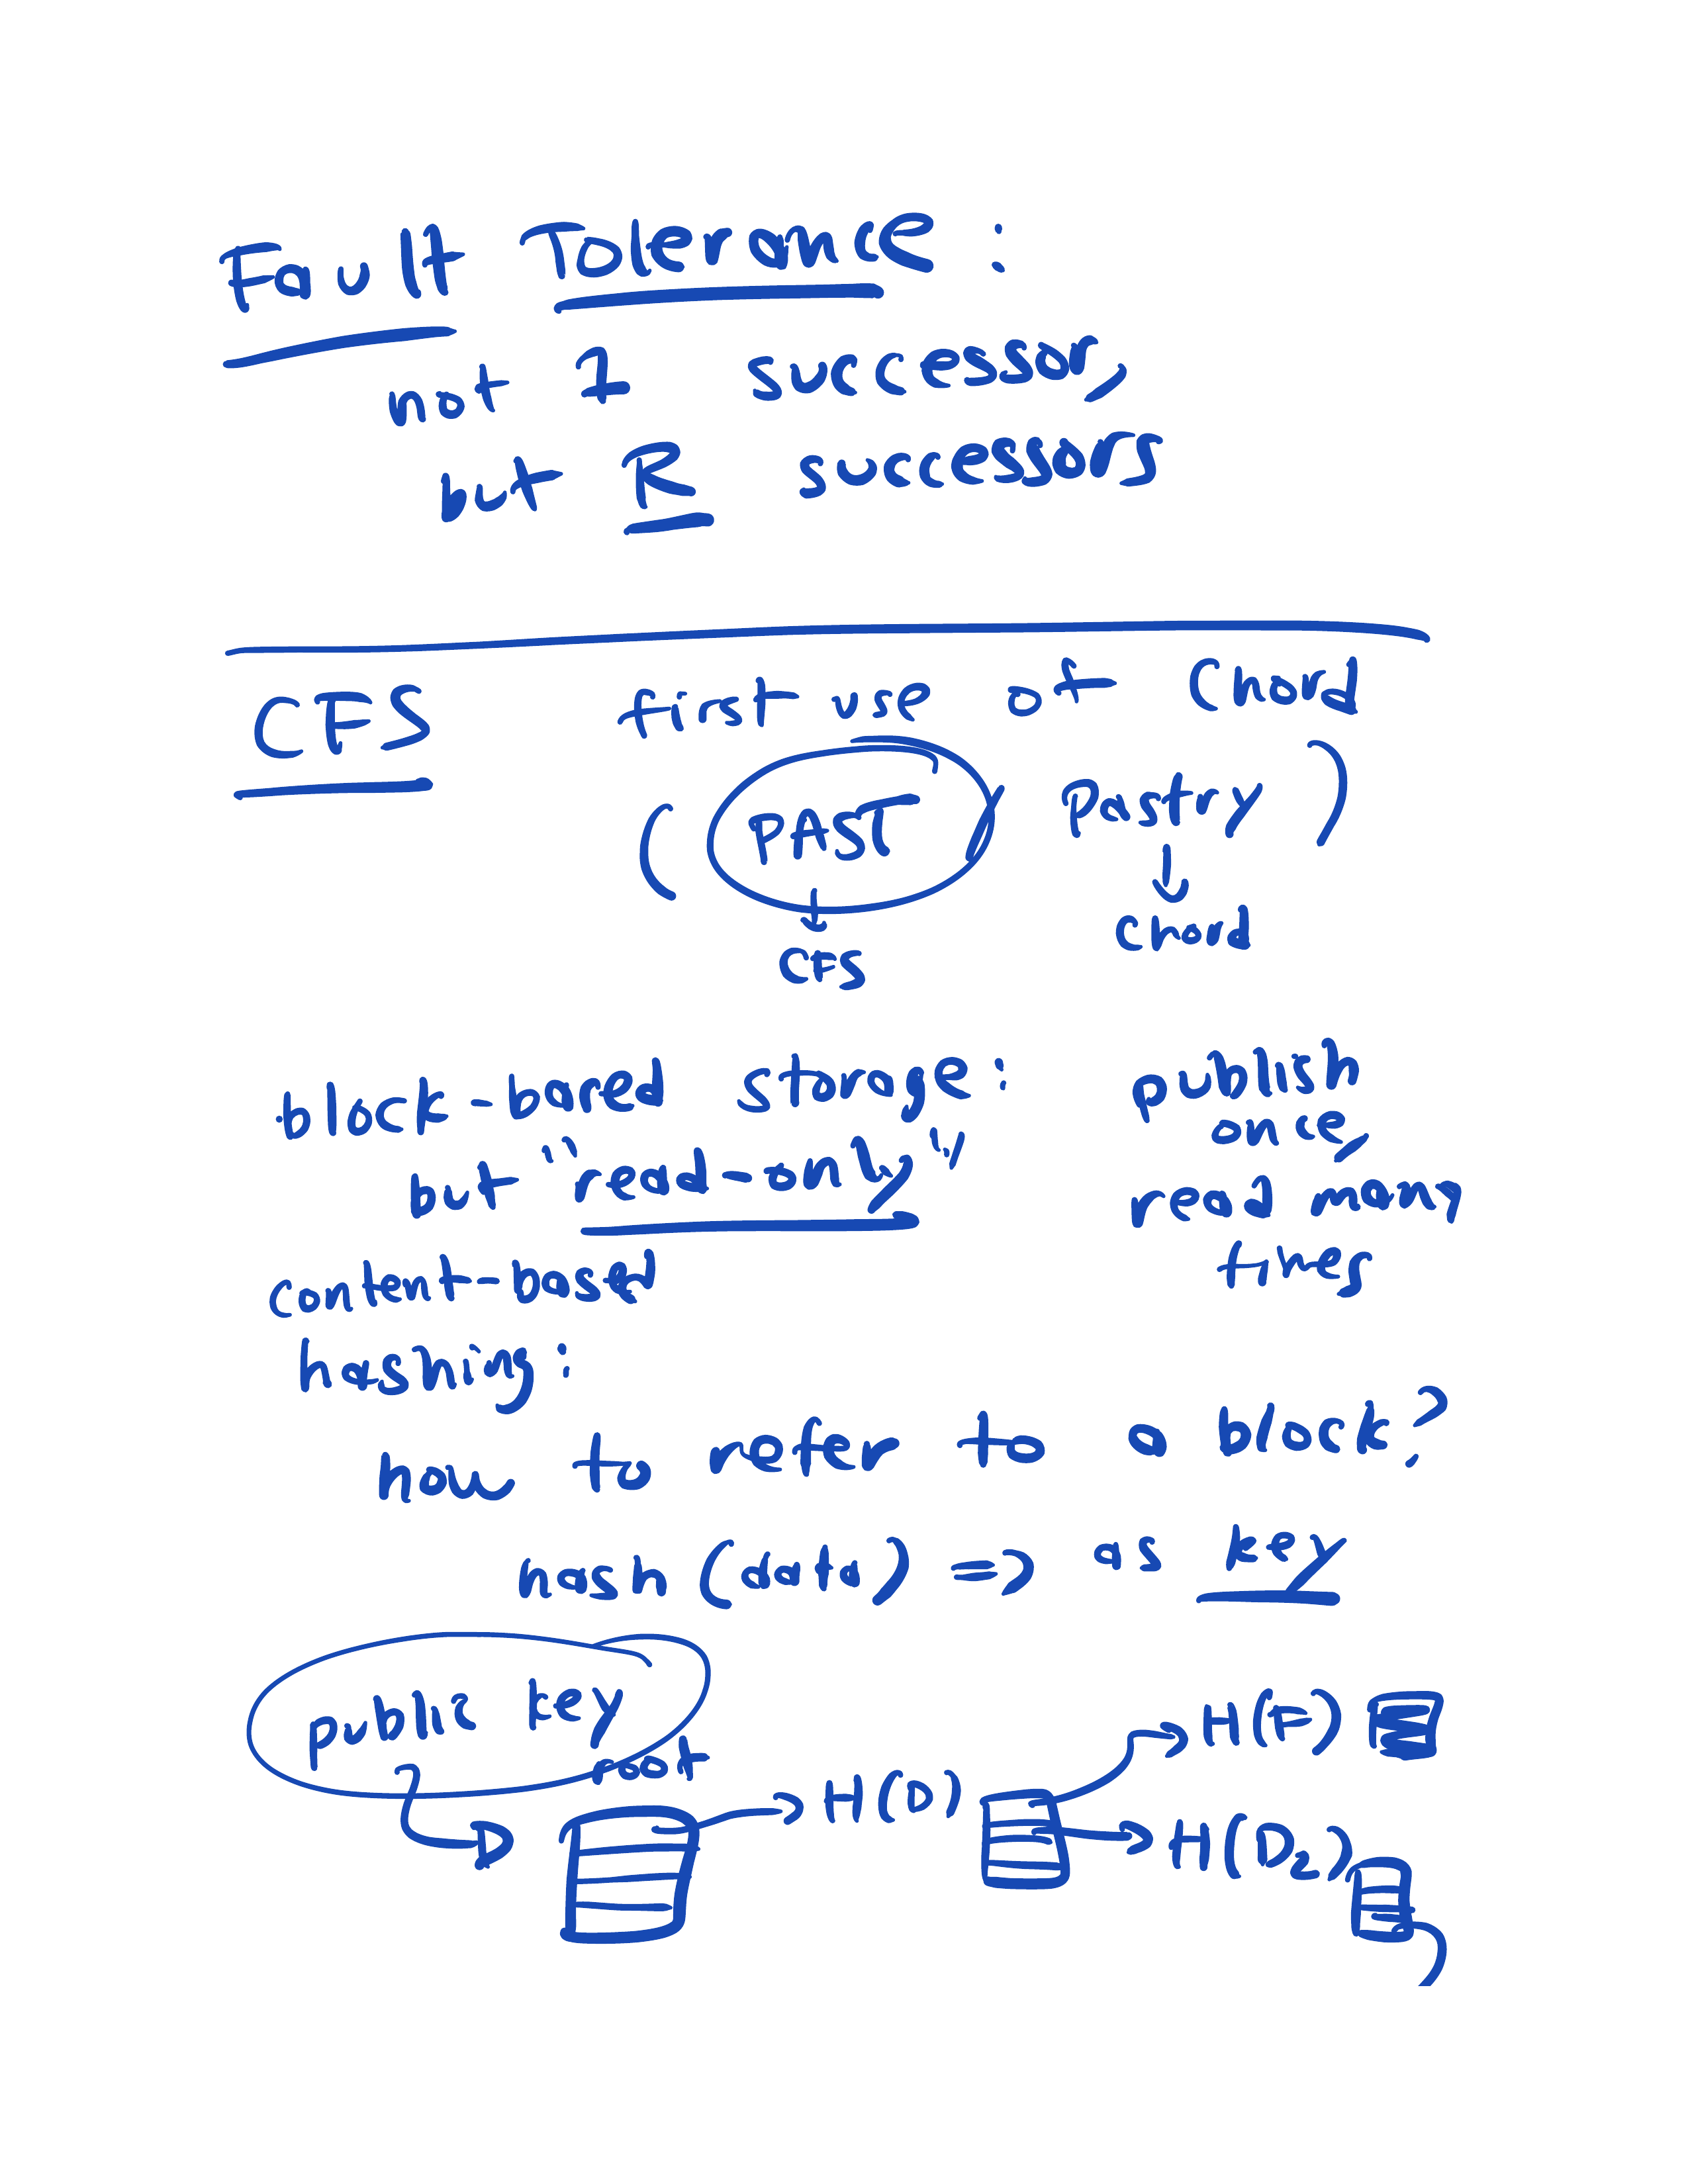 Fault Tolerance:
not 1 successor,
but R successors
CFS first use of Chord
(PAST / Pastry)
CFS Chord
block-based storage: publish
once,
but "read-only"
read many
times
content-based
hashing:
how to refer to a block?
hash(data) => as key
public key
root
H(D)
H(F)
H(D2)